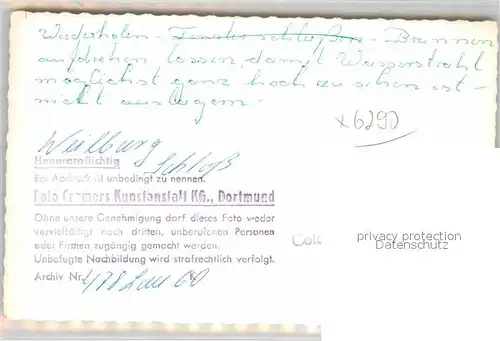 Wiederholen - Fenster schließen - Brunnen
aufdrehen lassen, damit Wasserstrahl
möglichst ganz hoch zu sehen ist -
nicht auslagern -
x6290
Weilburg
Schloß
Honorarpflichtig
Bei Abdruck ist unbedingt zu nennen.
Foto Cramers Kunstanstalt KG., Dortmund
Ohne unsere Genehmigung darf dieses Foto weder
vervielfältigt noch dritten, unberufenen Personen
oder Firmen zugängig gemacht werden.
Unbefugte Nachbildung wird strafrechtlich verfolgt.
Archiv Nr.
privacy protection
Datenschutz